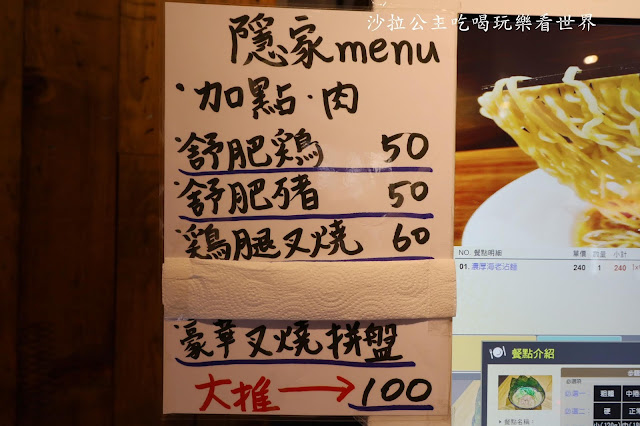 沙拉公主吃喝玩樂看世界
隱家menu
·加點·肉
·舒肥鶏 50
·舒肥豬 50
·鶏腿叉燒 60
·豪華叉燒拼盤
大推→100
NO. 餐點明細 單價 數量 小計
01. 濃厚海老沾麵 240 1 240
餐點介紹
粗麵
硬